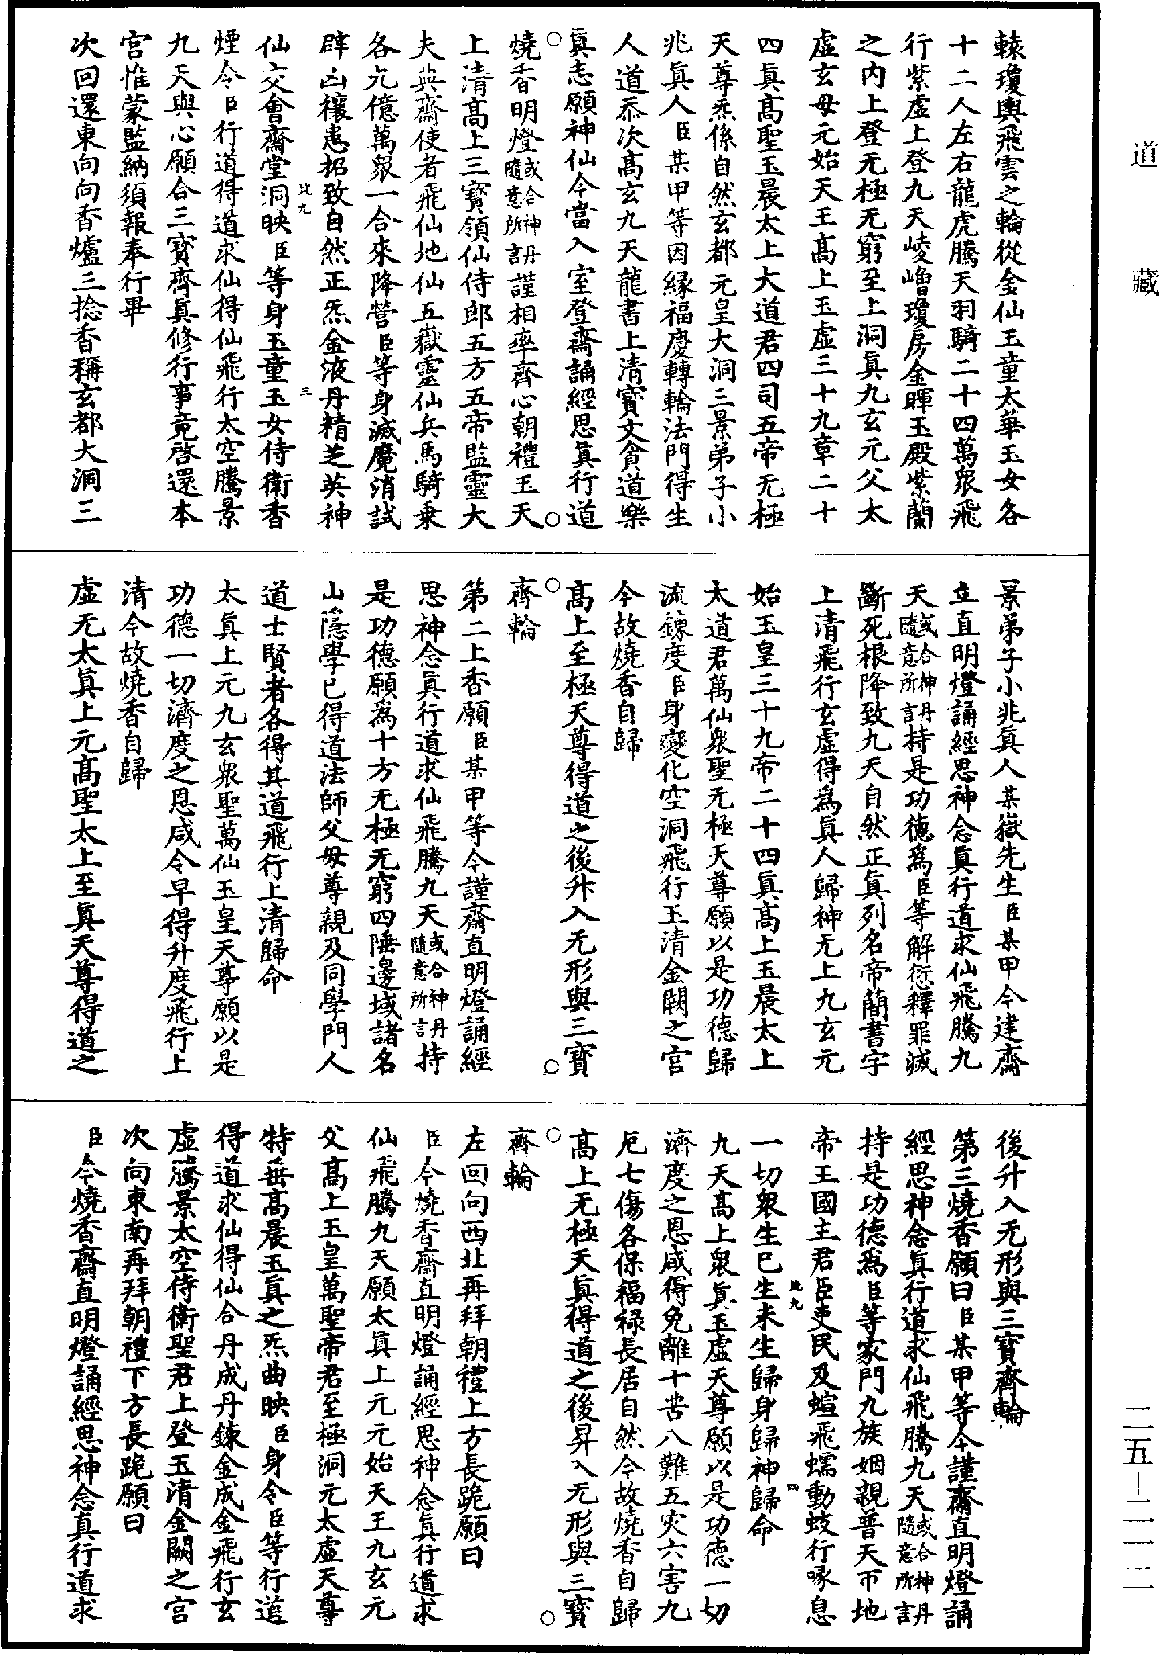 道藏
轅瓊輿飛雲之輪從金仙玉童太華玉女各
十二人左右龍虎騰天羽騎二十四萬衆飛
行紫虛上登九天崚嶒瓊房金暉玉殿紫蘭
之内上登无極无窮至上洞真九玄元父太
虛玄母元始天王高上玉虛三十九章二十
四真高聖玉晨太上大道君四司五帝无極
天尊炁係自然玄都元皇大洞三景弟子小
兆真人臣某甲等因緣福慶轉輪法門得生
人道忝次高玄九天龍書上清寶文貪道樂
真志願神仙今當入室登齋誦經思真行道
燒香明燈或合神丹隨意所言謹相率齊心朝禮玉天
上清高上三寶領仙侍郎五方五帝監靈大
夫典齋使者飛仙地仙五嶽靈仙兵馬騎乗
各九億萬衆一合來降營臣等身滅魔消試
辟凶禳恚招致自然正炁金液丹精芝英神
仙交會齋堂洞映臣等身玉童玉女侍衛香
煙令臣行道得道求仙得仙飛行太空騰景
九天與心願合三寶齊真修行事竟啓還本
宮惟蒙監納須報奉行畢
次回還東向向香爐三捻香稱玄都大洞三
景弟子小兆真人某嶽先生臣某甲今建齋
立直明燈誦經思神念真行道求仙飛騰九
天或合神丹隨意所言持是功德爲臣等解愆釋罪滅
斷死根降致九天自然正真列名帝簡書字
上清飛行玄虛得爲真人歸神无上九玄元
始玉皇三十九帝二十四真高上玉晨太上
太道君萬仙衆聖无極天尊願以是功德歸
流鍊度臣身變化空洞飛行玉清金闕之宮
今故燒香自歸
高上至極天尊得道之後升入无形與三寶
齊輪
第二上香願臣某甲等今謹齋直明燈誦經
思神念真行道求仙飛騰九天或合神丹隨意所言持
是功德願爲十方无極无窮四陲邊域諸名
山隱學已得道法師父母尊親及同學門人
道士賢者各得其道飛行上清歸命
太真上元九玄衆聖萬仙玉皇天尊願以是
功德一切濟度之恩咸令早得升度飛行上
清今故燒香自歸
虛无太真上元高聖太上至真天尊得道之
後升入无形與三寶齊輪
第三燒香願曰臣某甲等今謹齋直明燈誦
經思神念真行道求仙飛騰九天或合神丹隨意所言
持是功德爲臣等家門九族姻親普天帀地
帝王國主君臣吏民及蝖飛蠕動蚑行喙息
一切衆生巳生未生歸身歸神歸命
九天高上衆真玉虛天尊願以是功德一切
濟度之恩咸得免離十苦八難五灾六害九
厄七傷各保福祿長居自然今故燒香自歸
高上无極天真得道之後昇入无形與三寶
齊輪
左回向西北再拜朝禮上方長跪願曰
臣今燒香齋直明燈誦經思神念真行道求
仙飛騰九天願太真上元元始天王九玄元
父高上玉皇萬聖帝君至極洞元太虛天尊
特垂高晨玉真之炁曲映臣身令臣等行道
得道求仙得仙合丹成丹鍊金成金飛行玄
虛騰景太空侍衛聖君上登玉清金闕之宮
次向東南再拜朝禮下方長跪願曰
臣今燒香齋直明燈誦經思神念真行道求
二五—二一二